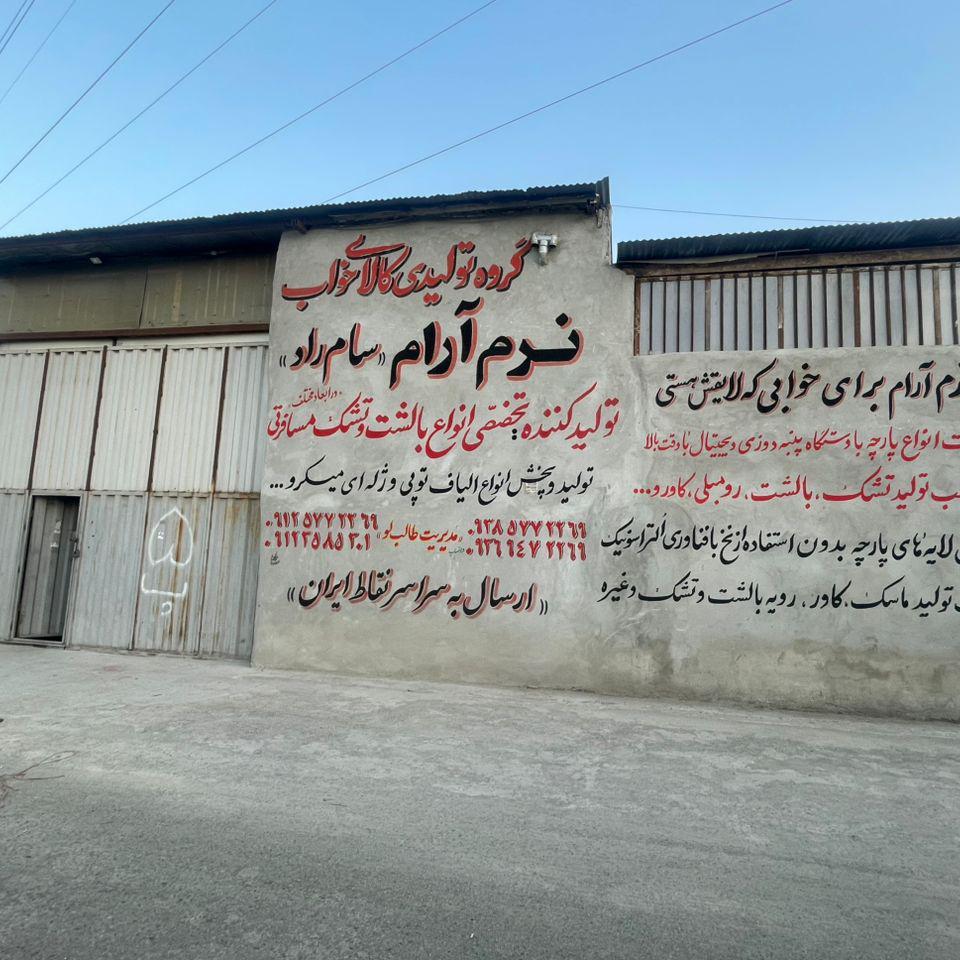 گروه تولیدی کالای خواب
نرم آرام «سام راد»
تولید کننده تخصصی انواع بالشت و تشک مسافرتی
در ابعاد مختلف
تولید و پخش انواع الیاف توپی و ژله ای میکرو ...
۰۹۳۸ ۵۷۷ ۲۲۶۹ «مدیریت طالب لو» ۰۹۱۲ ۵۷۷ ۲۲ ۶۹
۰۹۳۶ ۹۴۷ ۲۲۶۹ ۰۹۱۲۳۵۸۵۳۰۱
«ارسال به سراسر نقاط ایران»
آرام برای خوابی که لایقش هستی
انواع پارچه با دستگاه پنبه دوزی دیجیتال با دقت بالا
تولید تشک، بالشت، رومبلی، کاور و...
لایه های پارچه بدون استفاده از نخ با فناوری اُلتراسونیک
تولید ماسک، کاور، رویه بالشت و تشک و غیره
۵
ب